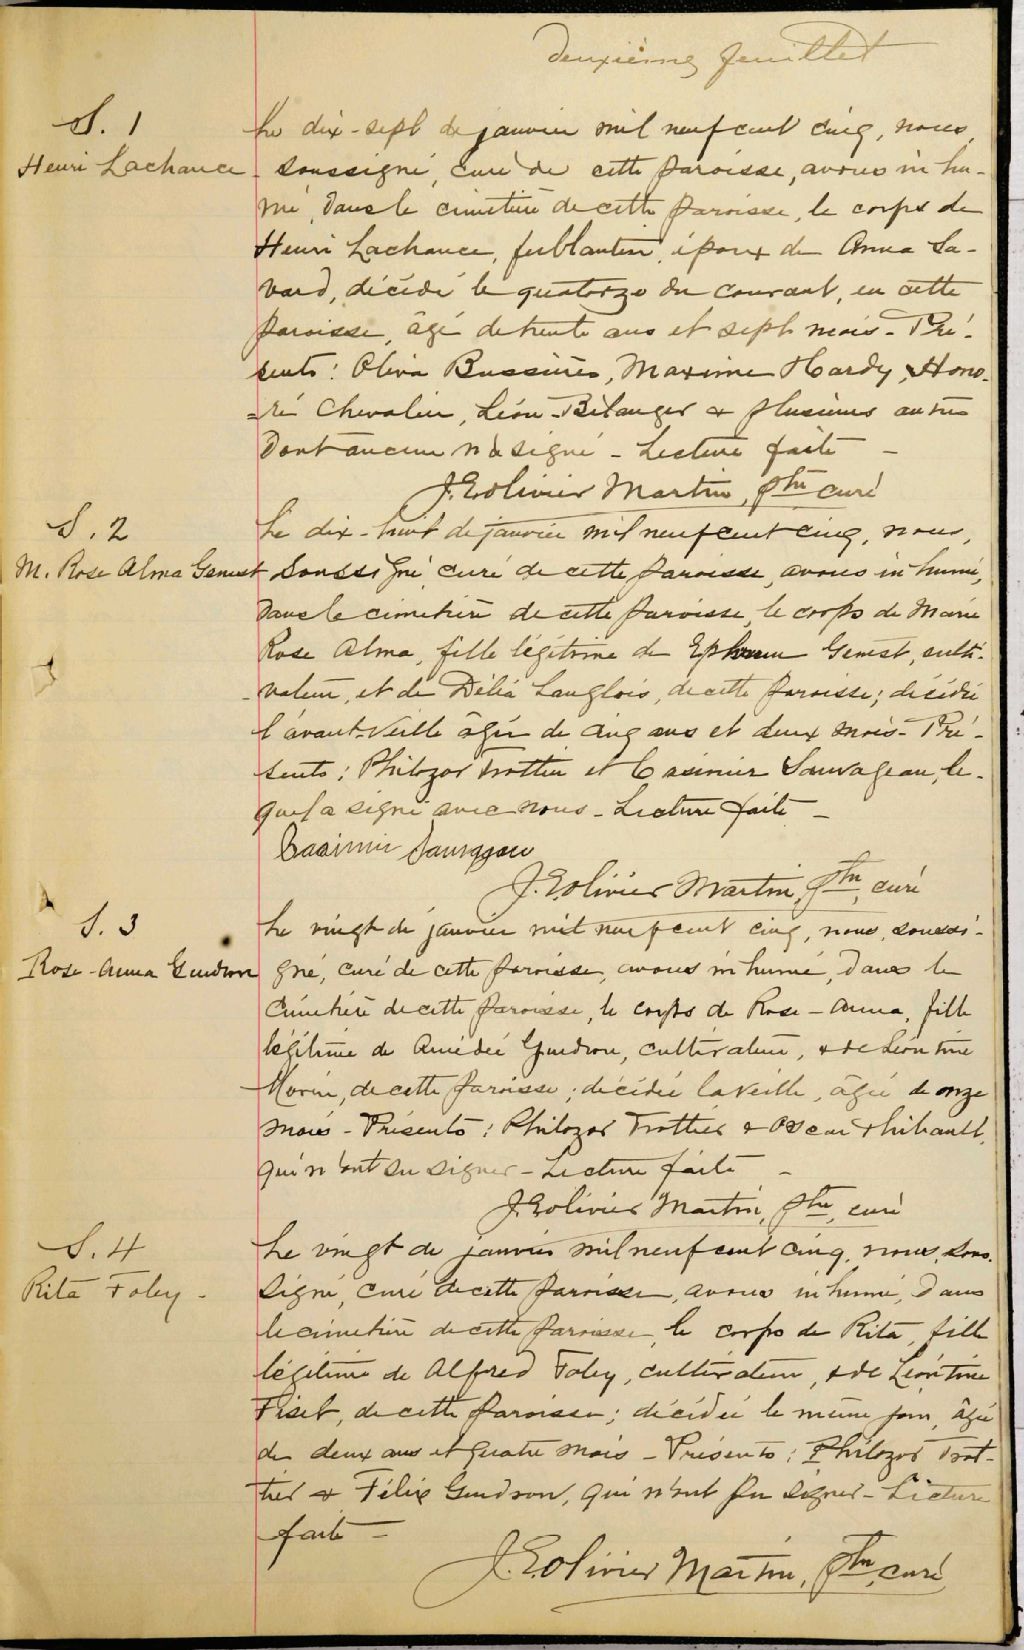 deuxième feuillet
S. 1
Henri Lachance
Le dix-sept de janvier mil neuf cent cinq, nous,
soussigné, curé de cette paroisse, avons inhu-
mé, dans le cimetière de cette paroisse, le corps de
Henri Lachance, ferblantier, époux de Anna Sa-
vard, décédé le quatorze du courant, en cette
paroisse, âgé de trente ans et sept mois - Pré-
sents : Oliva Bussières, Maxime Hardy, Hono-
=ré Chevalier, Léon Bélanger & plusieurs autres
dont aucun n'a signé - Lecture faite -
J. E. Olivier Martin, ptre curé
S. 2
M. Rose Alma Genest
Le dix-huit de janvier mil neuf cent cinq, nous,
soussigné, curé de cette paroisse, avons inhumé,
dans le cimetière de cette paroisse, le corps de Marie
Rose Alma, fille légitime de Ephrem Genest, culti-
-vateur, et de Délia Langlois, de cette paroisse; décédée
l'avant-veille âgée de cinq ans et deux mois - Pré-
sents : Philozor Trottier et Casimir Sauvageau, le-
quel a signé avec nous - Lecture faite -
Casimir Sauvageau
J. E. Olivier Martin, ptre, curé
S. 3
Rose-Anna Gendron
Le vingt de janvier mil neuf cent cinq, nous, soussi-
gné, curé de cette paroisse, avons inhumé, dans le
cimetière de cette paroisse, le corps de Rose-Anna, fille
légitime de Amédée Gendron, cultivateur, & de Léontine
Morin, de cette paroisse; décédée la veille, âgée de onze
mois - Présents : Philozor Trottier & Oscar Thibault,
qui n'ont su signer - Lecture faite -
J. E. Olivier Martin, ptre, curé
S. 4
Rita Foley -
Le vingt de janvier mil neuf cent cinq, nous, sous-
signé, curé de cette paroisse, avons inhumé, dans
le cimetière de cette paroisse, le corps de Rita, fille
légitime de Alfred Foley, cultivateur, & de Léontine
Fiset, de cette paroisse; décédée le même jour, âgée
de deux ans et quatre mois - Présents : Philozor Trot-
tier & Félix Gendron, qui n'ont pu signer - Lecture
faite -
J. E. Olivier Martin, ptre, curé